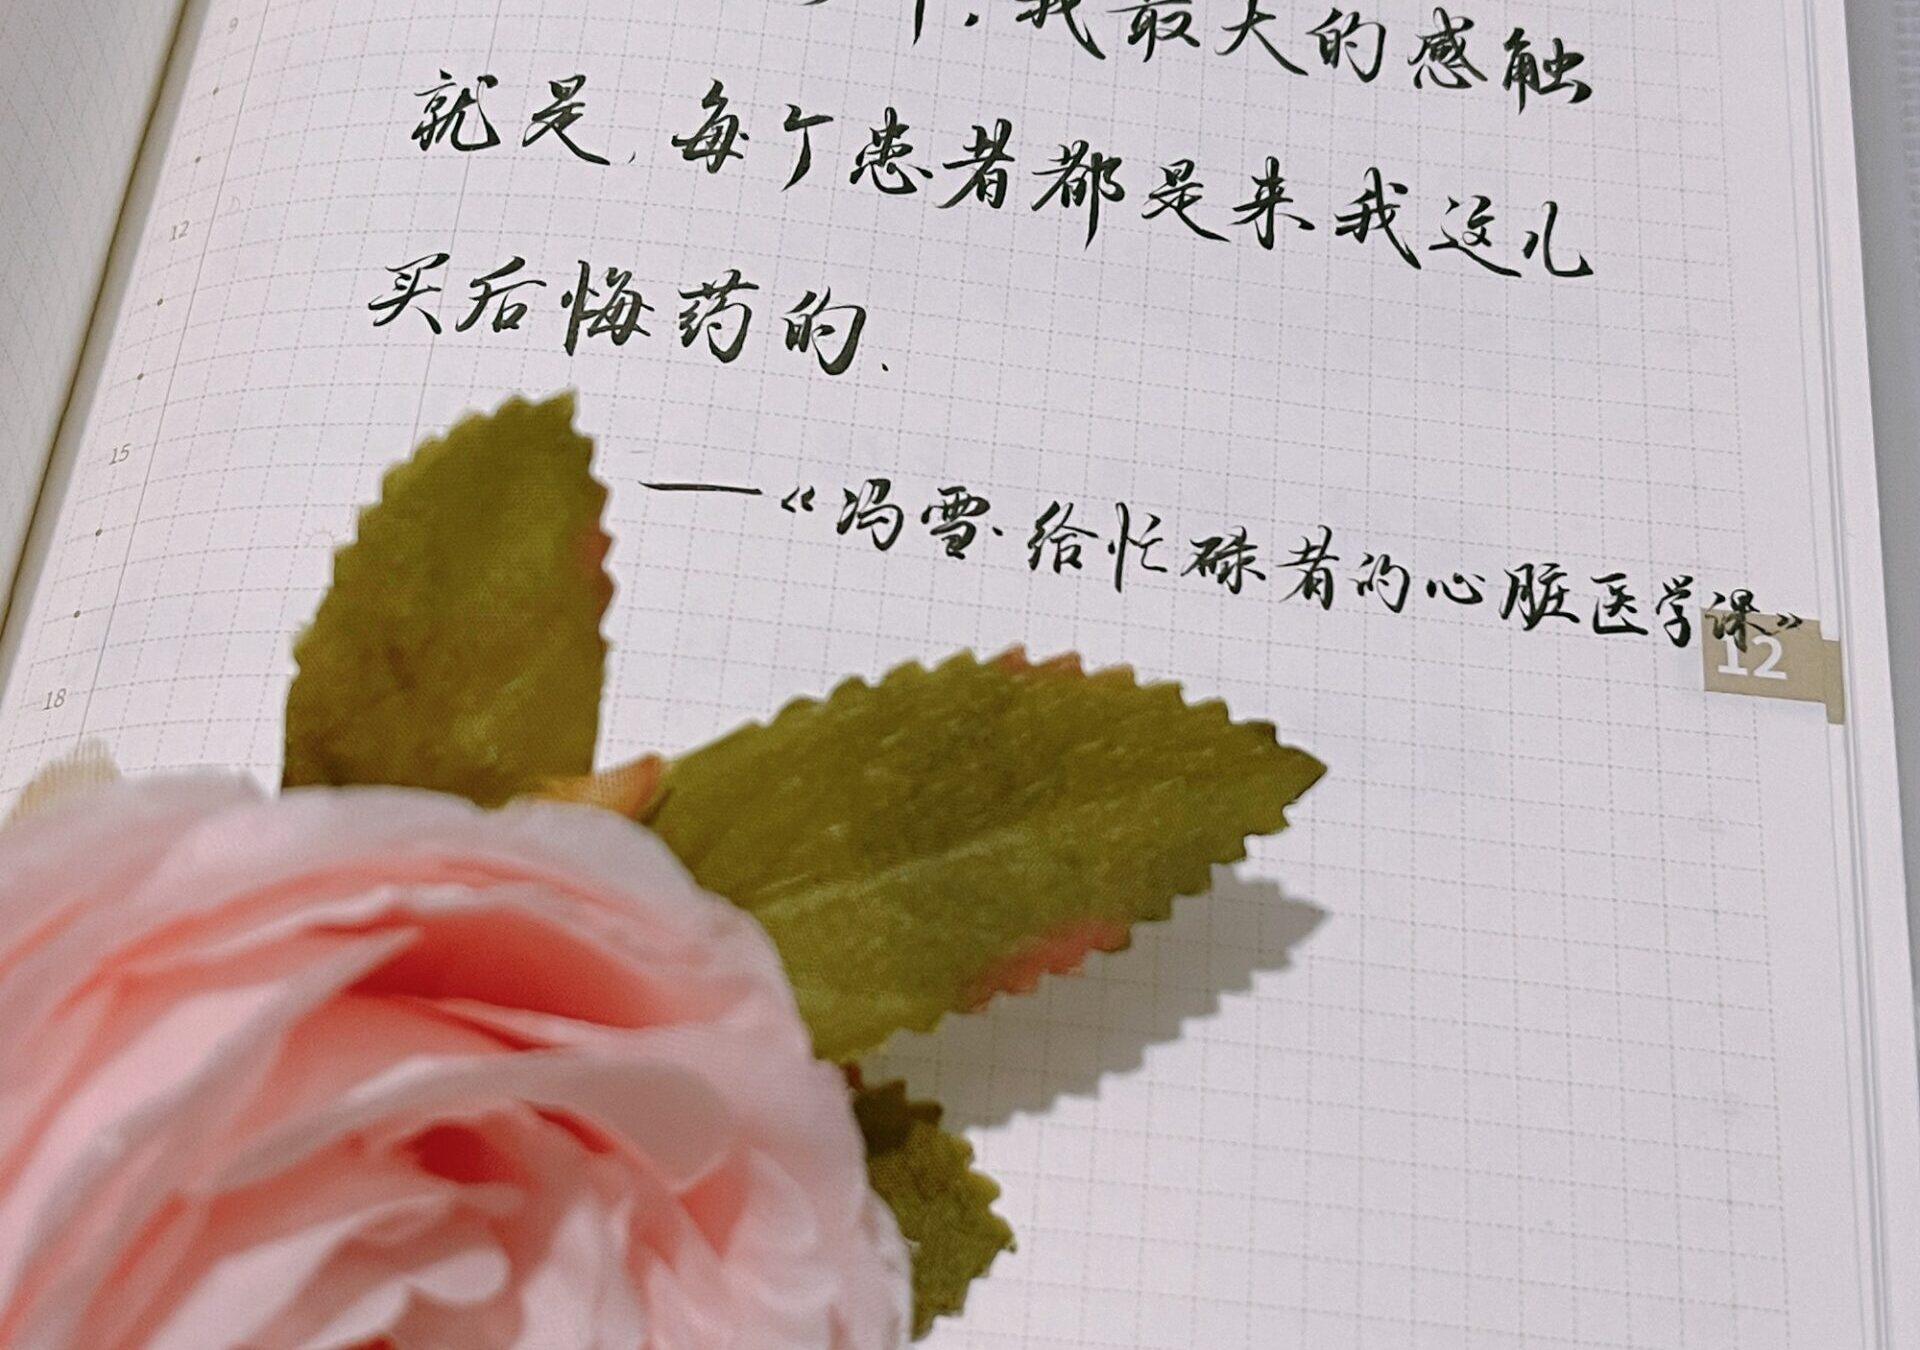 9
我最大的感触
就是,每个患者都是来我这儿
12
买后悔药的.
15
——《冯雪·给忙碌者的心脏医学课》
12
18